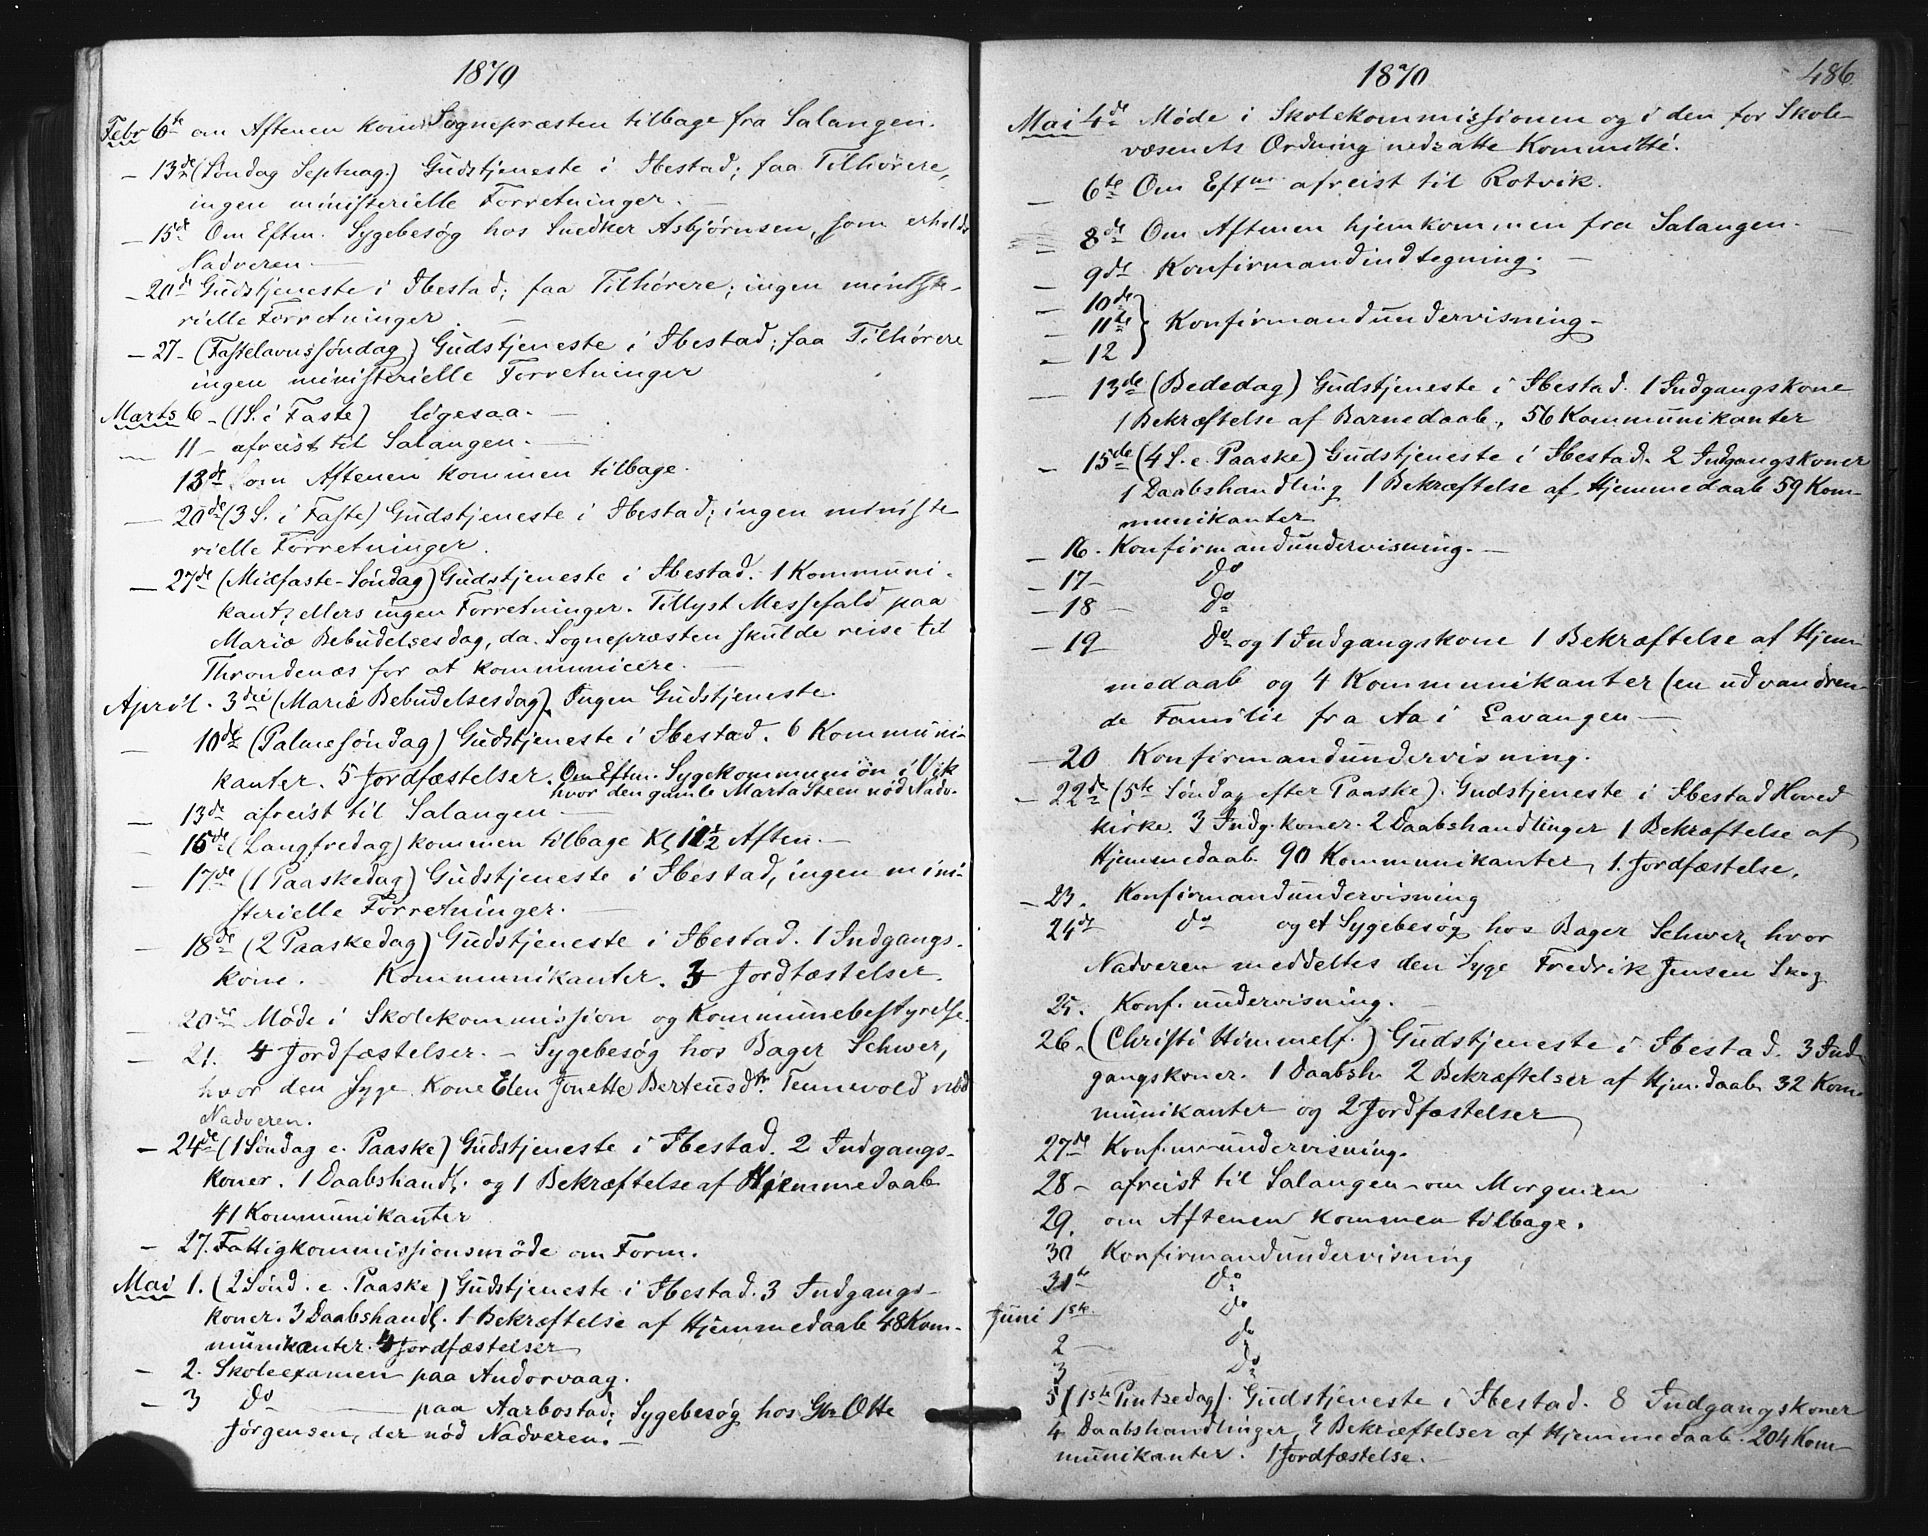 1870
Febr 6te om Aftenen kom Sognepræsten tilbage fra Salangen.
— 13de (Søndag Septuag.) Gudstjeneste i Ibestad; faa Tilhørere,
ingen ministerielle Forretninger. —
— 15de Om Eftm. Sygebesøg hos Snedker Asbjørnsen, som erholdt
Nadveren —
— 20de Gudstjeneste i Ibestad; faa Tilhørere; ingen ministe-
rielle Forretninger —
— 27 – (Fastelavnssøndag) Gudstjeneste i Ibestad; faa Tilhørere
ingen ministerielle Forretninger
Marts 6 – (1 S. i Faste) ligesaa. —
— 11 – afreist til Salangen. —
13de om Aftenen kommen tilbage.
— 20de (3 S. i Faste) Gudstjeneste i Ibestad; ingen ministe
rielle Forretninger.
— 27de (Midfaste-Søndag) Gudstjeneste i Ibestad. 1 Kommuni-
kant; ellers ingen Forretninger. Tillyst Messefald paa
Mariæ Bebudelsesdag, da Sognepræsten skulde reise til
Throndenæs for at kommunicere. —
April. 3die (Mariæ Bebudelsesdag). Ingen Gudstjeneste.
— 10de (Palmesøndag) Gudstjeneste i Ibestad. 6 Kommuni-
kanter. 5 Jordfæstelser. Om Eftm. Sygekommunion i Vik
hvor den gamle Marta Steen nød Nadv.
— 13de afreist til Salangen —
— 15de (Langfredag) kommen tilbage Kl 11½ Aften. —
— 17de (1 Paaskedag) Gudstjeneste i Ibestad, ingen mini-
sterielle Forretninger. —
— 18de (2 Paaskedag) Gudstjeneste i Ibestad. 1 Indgangs-
kone. Kommunikanter. 3 Jordfæstelser.
— 20de Møde i Skolekommission og Kommunebestyrelse.
— 21. 4 Jordfæstelser. – Sygebesøg hos Bager Schwer,
hvor den syge Kone Elen Jonette Berteusdtr Tennevold nød
Nadveren.
— 24de (1 Søndag e. Paaske) Gudstjeneste i Ibestad. 2 Indgangs-
koner. 1 Daabshandl. og 1 Bekræftelse af Hjemmedaab
41 Kommunikanter
— 27. Fattigkommissionsmøde om Form.
Mai 1. (2 Sønd. e. Paaske) Gudstjeneste i Ibestad. 3 Indgangs-
koner. 3 Daabshandl. 1 Bekræftelse af Hjemmedaab 48 Kom-
munikanter. 4 Jordfæstelser
— 2. Skoleexamen paa Andorvaag.
— 3 Do — paa Aarbostad; Sygebesøg hos Gbr Otte
Jørgensen, der nød Nadveren. —
1870
486
Mai 4de Møde i Skolekommissionen og i den for Skole-
væsenets Ordning nedsatte Kommitté.
— 6te Om Eftm afreist til Rotvik.
— 8de Om Aftenen hjemkommen fra Salangen. —
— 9de Konfirmandindtegning. —
— 10de
— 11te } Konfirmandundervisning –
— 12
— 13de (Bededag) Gudstjeneste i Ibestad. 1 Indgangskone
1 Bekræftelse af Barnedaab, 56 Kommunikanter
— 15de (4 S. e. Paaske) Gudstjeneste i Ibestad. 2 Indgangskoner
1 Daabshandling 1 Bekræftelse af Hjemmedaab 59 Kom-
munikanter
— 16. Konfirmandundervisning. —
— 17 – Do
— 18 – Do
— 19 Do og 1 Indgangskone 1 Bekræftelse af Hjem-
medaab og 4 Kommunikanter (en udvandren-
de Familie fra Aa i Lavangen —
— 20 Konfirmandundervisning.
— 22de (5te Søndag efter Paaske). Gudstjeneste i Ibestad Hoved
kirke. 3 Indg.koner. 2 Daabshandlinger 1 Bekræftelse af
Hjemmedaab 90 Kommunikanter, 1. Jordfæstelse.
— 23. Konfirmandundervisning
24de do og et Sygebesøg hos Bager Schwer, hvor
Nadveren meddeltes den syge Fredrik Jensen Skog
25. Konf. undervisning. —
26. (Christi Himmelf.) Gudstjeneste i Ibestad. 3 Ind-
gangskoner. 1 Daabsh. 2 Bekræftelser af Hjm.daab 32 Kom-
munikanter og 2 Jordfæstelser
27de Konf.undervisning.
28 – afreist til Salangen om Morgenen
29. om Aftenen kommen tilbage.
30 Konfirmandundervisning
31te Do
Juni 1ste Do
2 — Do
3 Do
5 (1ste Pintsedag). Gudstjeneste i Ibestad. 8 Indgangskoner
4 Daabshandlinger, Bekræftelser af Hjemmedaab. 204 Kom-
munikanter. 1 Jordfæstelse. —